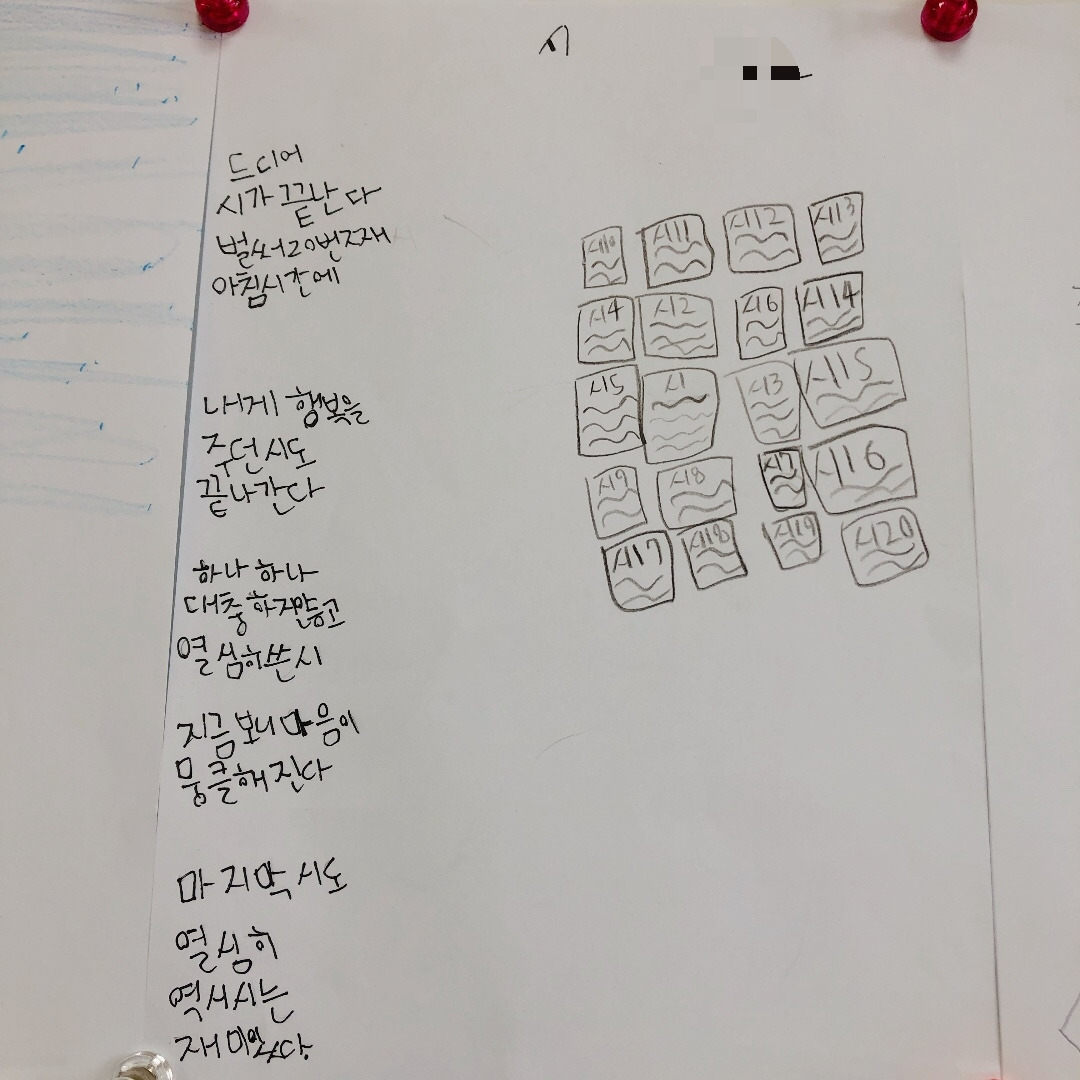 시
드디어
시가 끝난다
벌써 20번째
아침시간에
내게 행복을
주던 시도
끝나간다
하나 하나
대충하지않고
열심히쓴시
지금보니 마음이
뭉클해진다
마지막 시도
열심히
역시시는
재미있다.
시10 시11 시12 시13
시4 시2 시6 시14
시5 시1 시3 시15
시9 시8 시7 시16
시17 시18 시19 시20